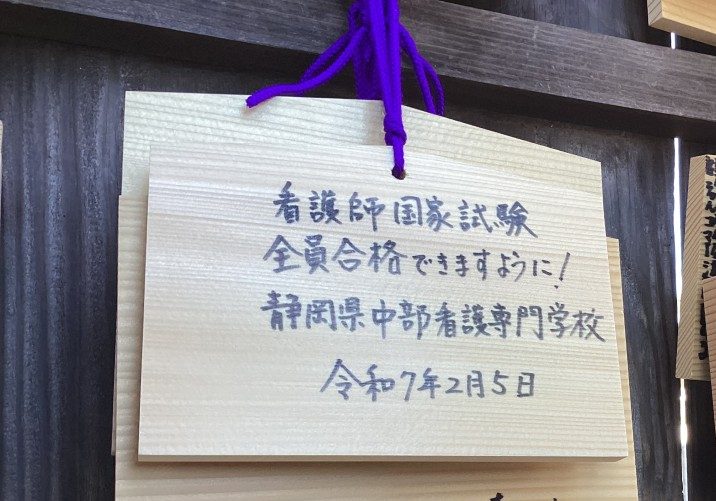 看護師国家試験
全員合格できますように!
静岡県中部看護専門学校
令和7年2月5日